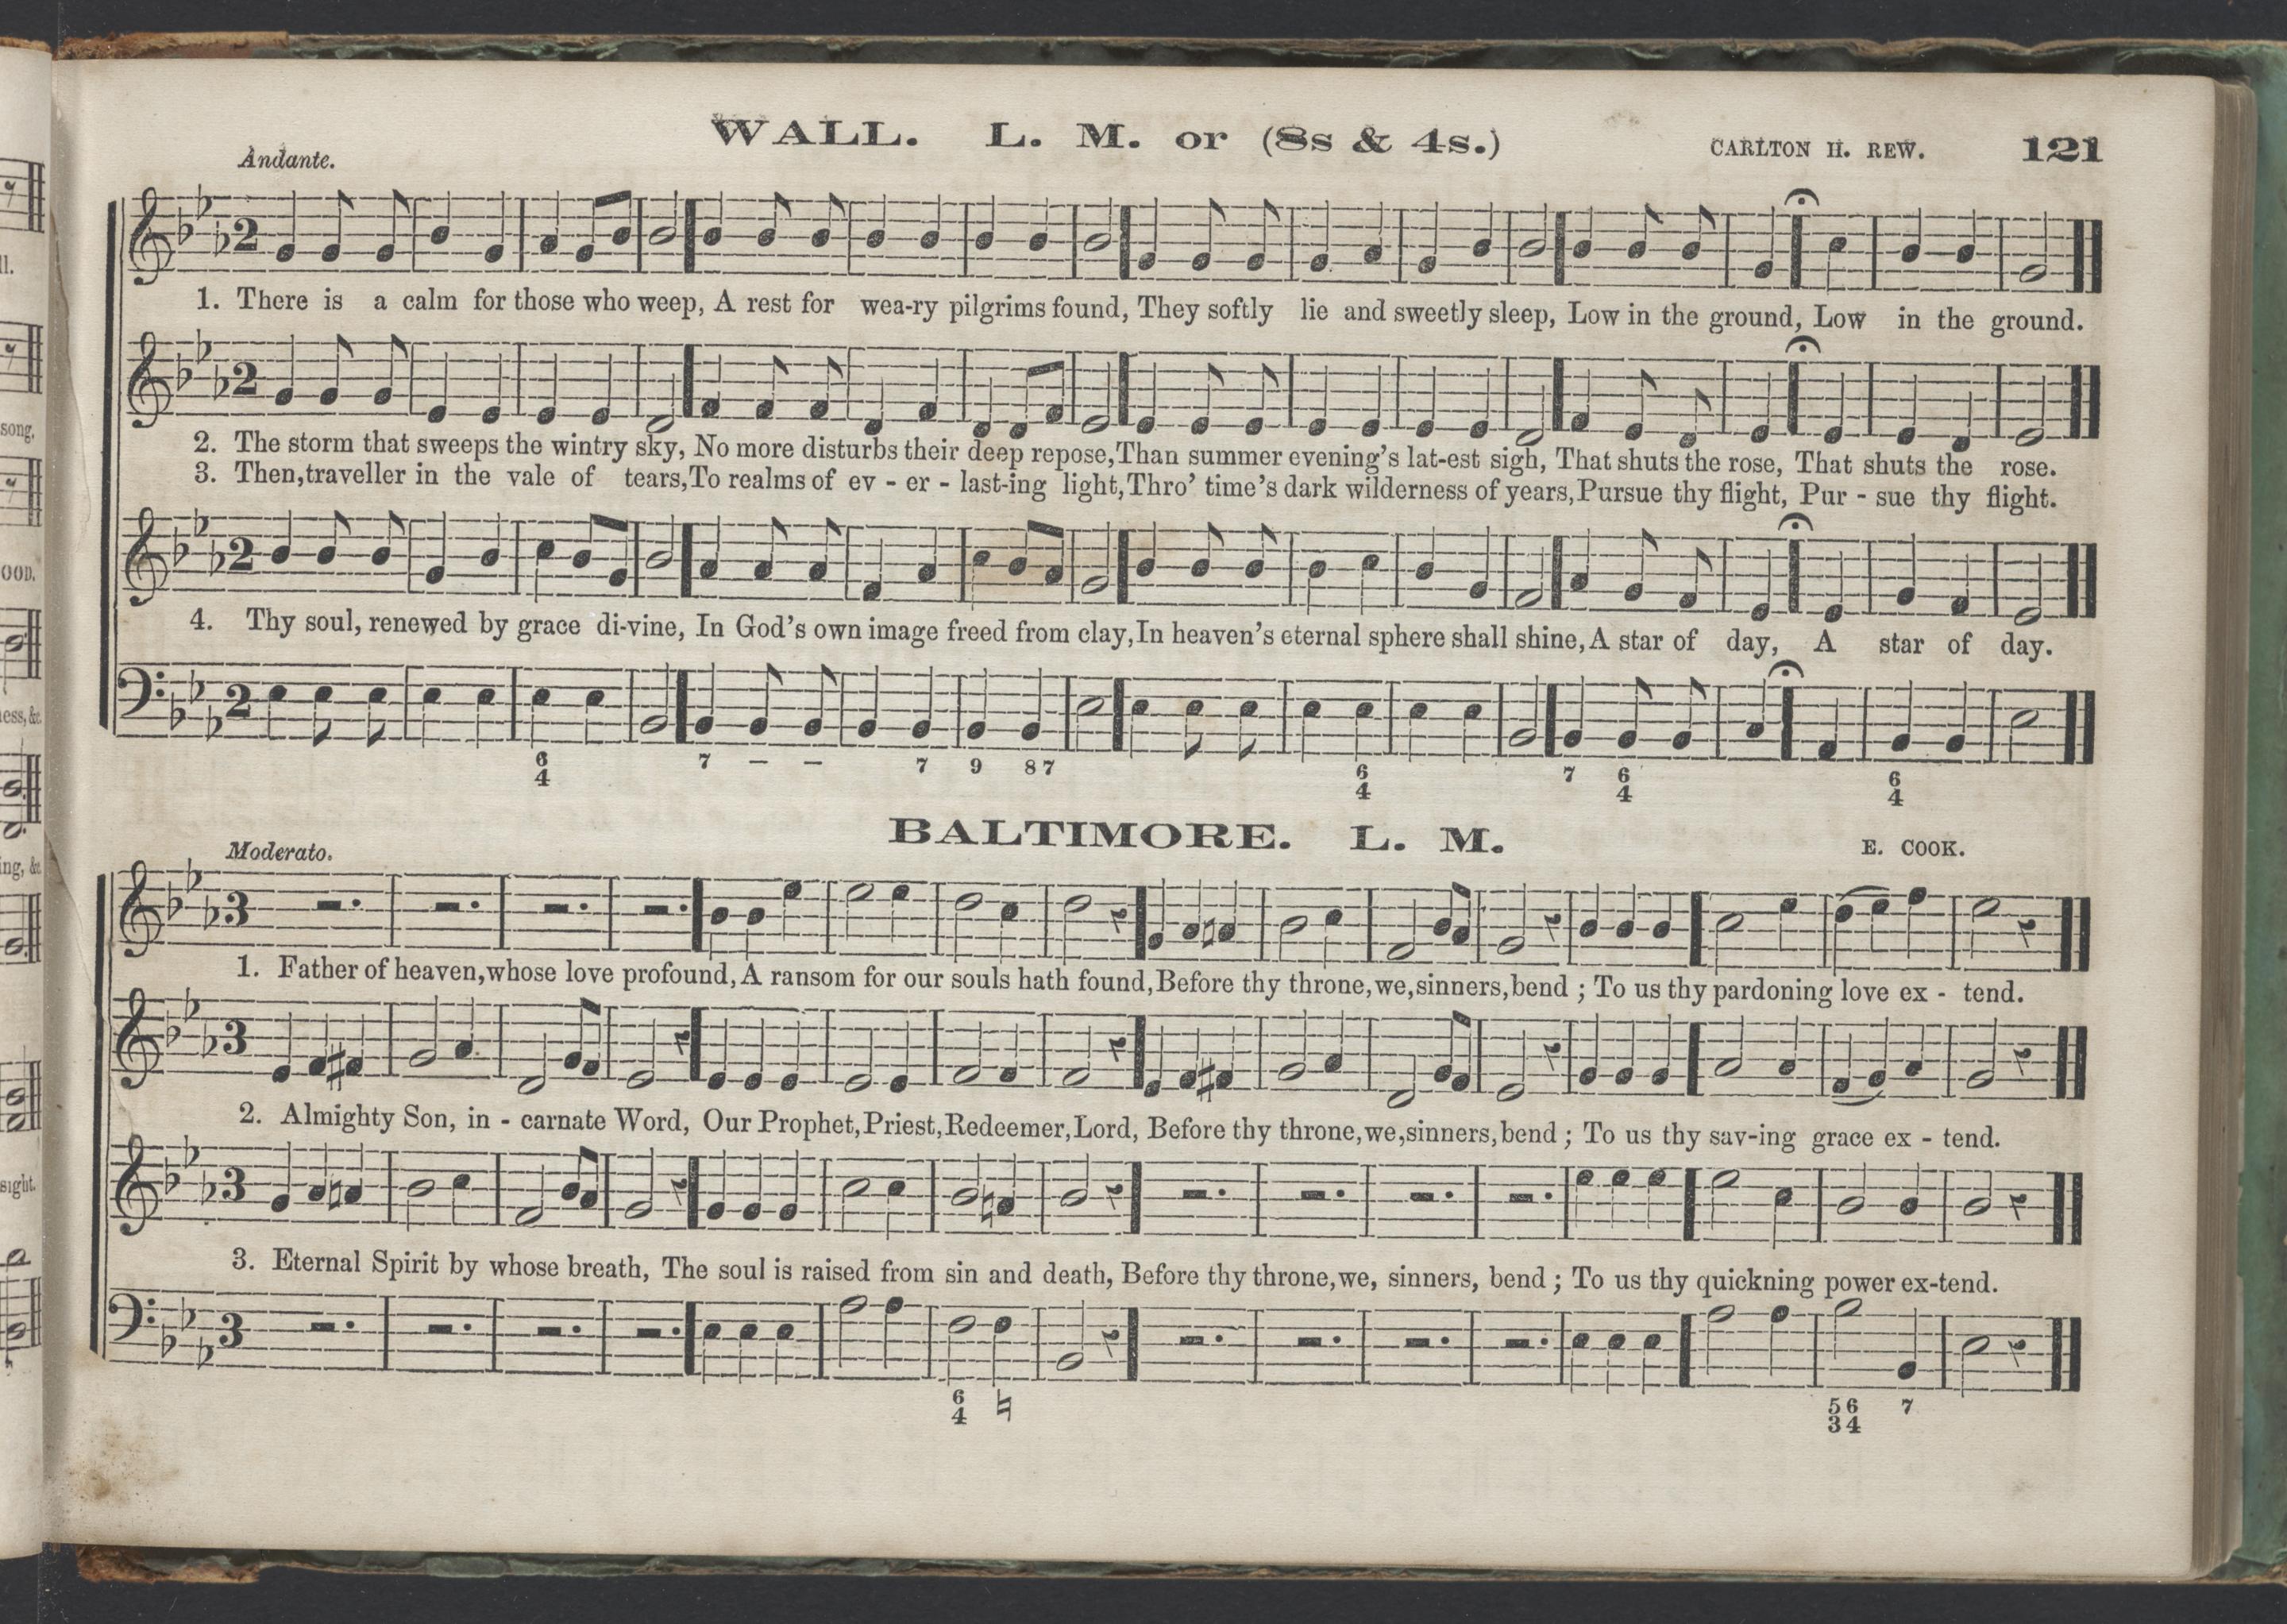 WALL. L. M. or (8s & 4s.)
CARLTON H. REW.
121
Andante.
2
1. There is a calm for those who weep, A rest for wea-ry pilgrims found, They softly lie and sweetly sleep, Low in the ground, Low in the ground.
2
2. The storm that sweeps the wintry sky, No more disturbs their deep repose, Than summer evening's lat-est sigh, That shuts the rose, That shuts the rose.
3. Then, traveller in the vale of tears, To realms of ev - er - last-ing light, Thro' time's dark wilderness of years, Pursue thy flight, Pur - sue thy flight.
2
4. Thy soul, renewed by grace di-vine, In God's own image freed from clay, In heaven's eternal sphere shall shine, A star of day, A star of day.
2
6 7 – – 7 9 8 7 6 7 6 6
4 4 4 4
BALTIMORE. L. M.
E. COOK.
Moderato.
3
1. Father of heaven, whose love profound, A ransom for our souls hath found, Before thy throne, we, sinners, bend ; To us thy pardoning love ex - tend.
3
2. Almighty Son, in - carnate Word, Our Prophet, Priest, Redeemer, Lord, Before thy throne, we, sinners, bend ; To us thy sav-ing grace ex - tend.
3
3. Eternal Spirit by whose breath, The soul is raised from sin and death, Before thy throne, we, sinners, bend ; To us thy quickning power ex-tend.
3
6 ♮ 5 6 7
4 3 4
ll.
song.
OOD.
ess, &c.
ing, &c.
sight.